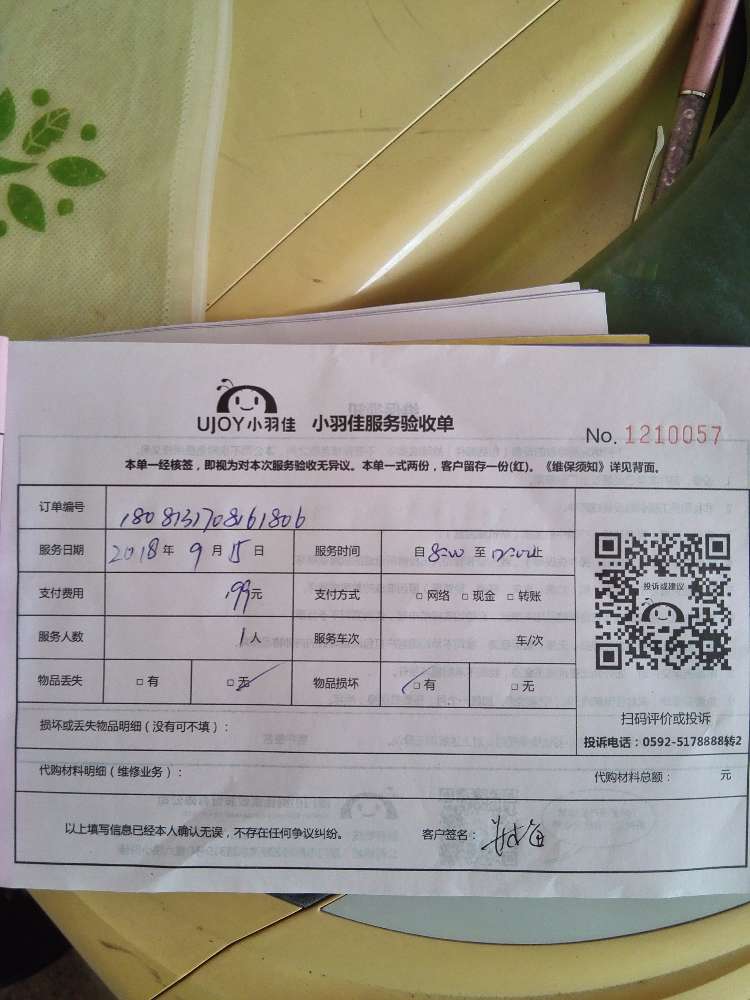 UJOY小羽佳 小羽佳服务验收单
No. 1210057
本单一经核签，即视为对本次服务验收无异议。本单一式两份，客户留存一份(红)。《维保须知》详见背面。
订单编号 1808131708161806
服务日期 2018年 9月 15日 服务时间 自 8:00 至 12:00 止
支付费用 199元 支付方式 □网络 □现金 □转账
服务人数 1人 服务车次 车/次
物品丢失 □有 □无 物品损坏 □有 □无
投诉或建议
扫码评价或投诉
投诉电话：0592-5178888转2
损坏或丢失物品明细（没有可不填）：
代购材料明细（维修业务）： 代购材料总额： 元
以上填写信息已经本人确认无误，不存在任何争议纠纷。 客户签名：